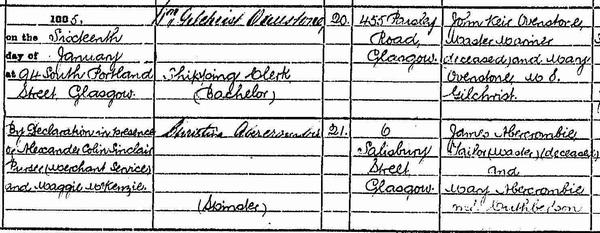 on the Sixteenth
day of January
at 94 South Portland
Street Glasgow.
Gilchrist Ovenstone
Shipping Clerk
(Bachelor)
20.
455 Paisley
Road,
Glasgow.
John Keir Ovenstone,
Master Mariner
(deceased) and Mary
Ovenstone, M.S.
Gilchrist.
By Declaration in presence
of Alexander Colin Sinclair
Purser (Merchant Service)
and Maggie McKenzie.
Christina Abercrombie
(Spinster)
21.
6
Salisbury
Street
Glasgow.
James Abercrombie
Tailor (Master) (deceased)
and
Mary Abercrombie
m.s. Cuthbertson